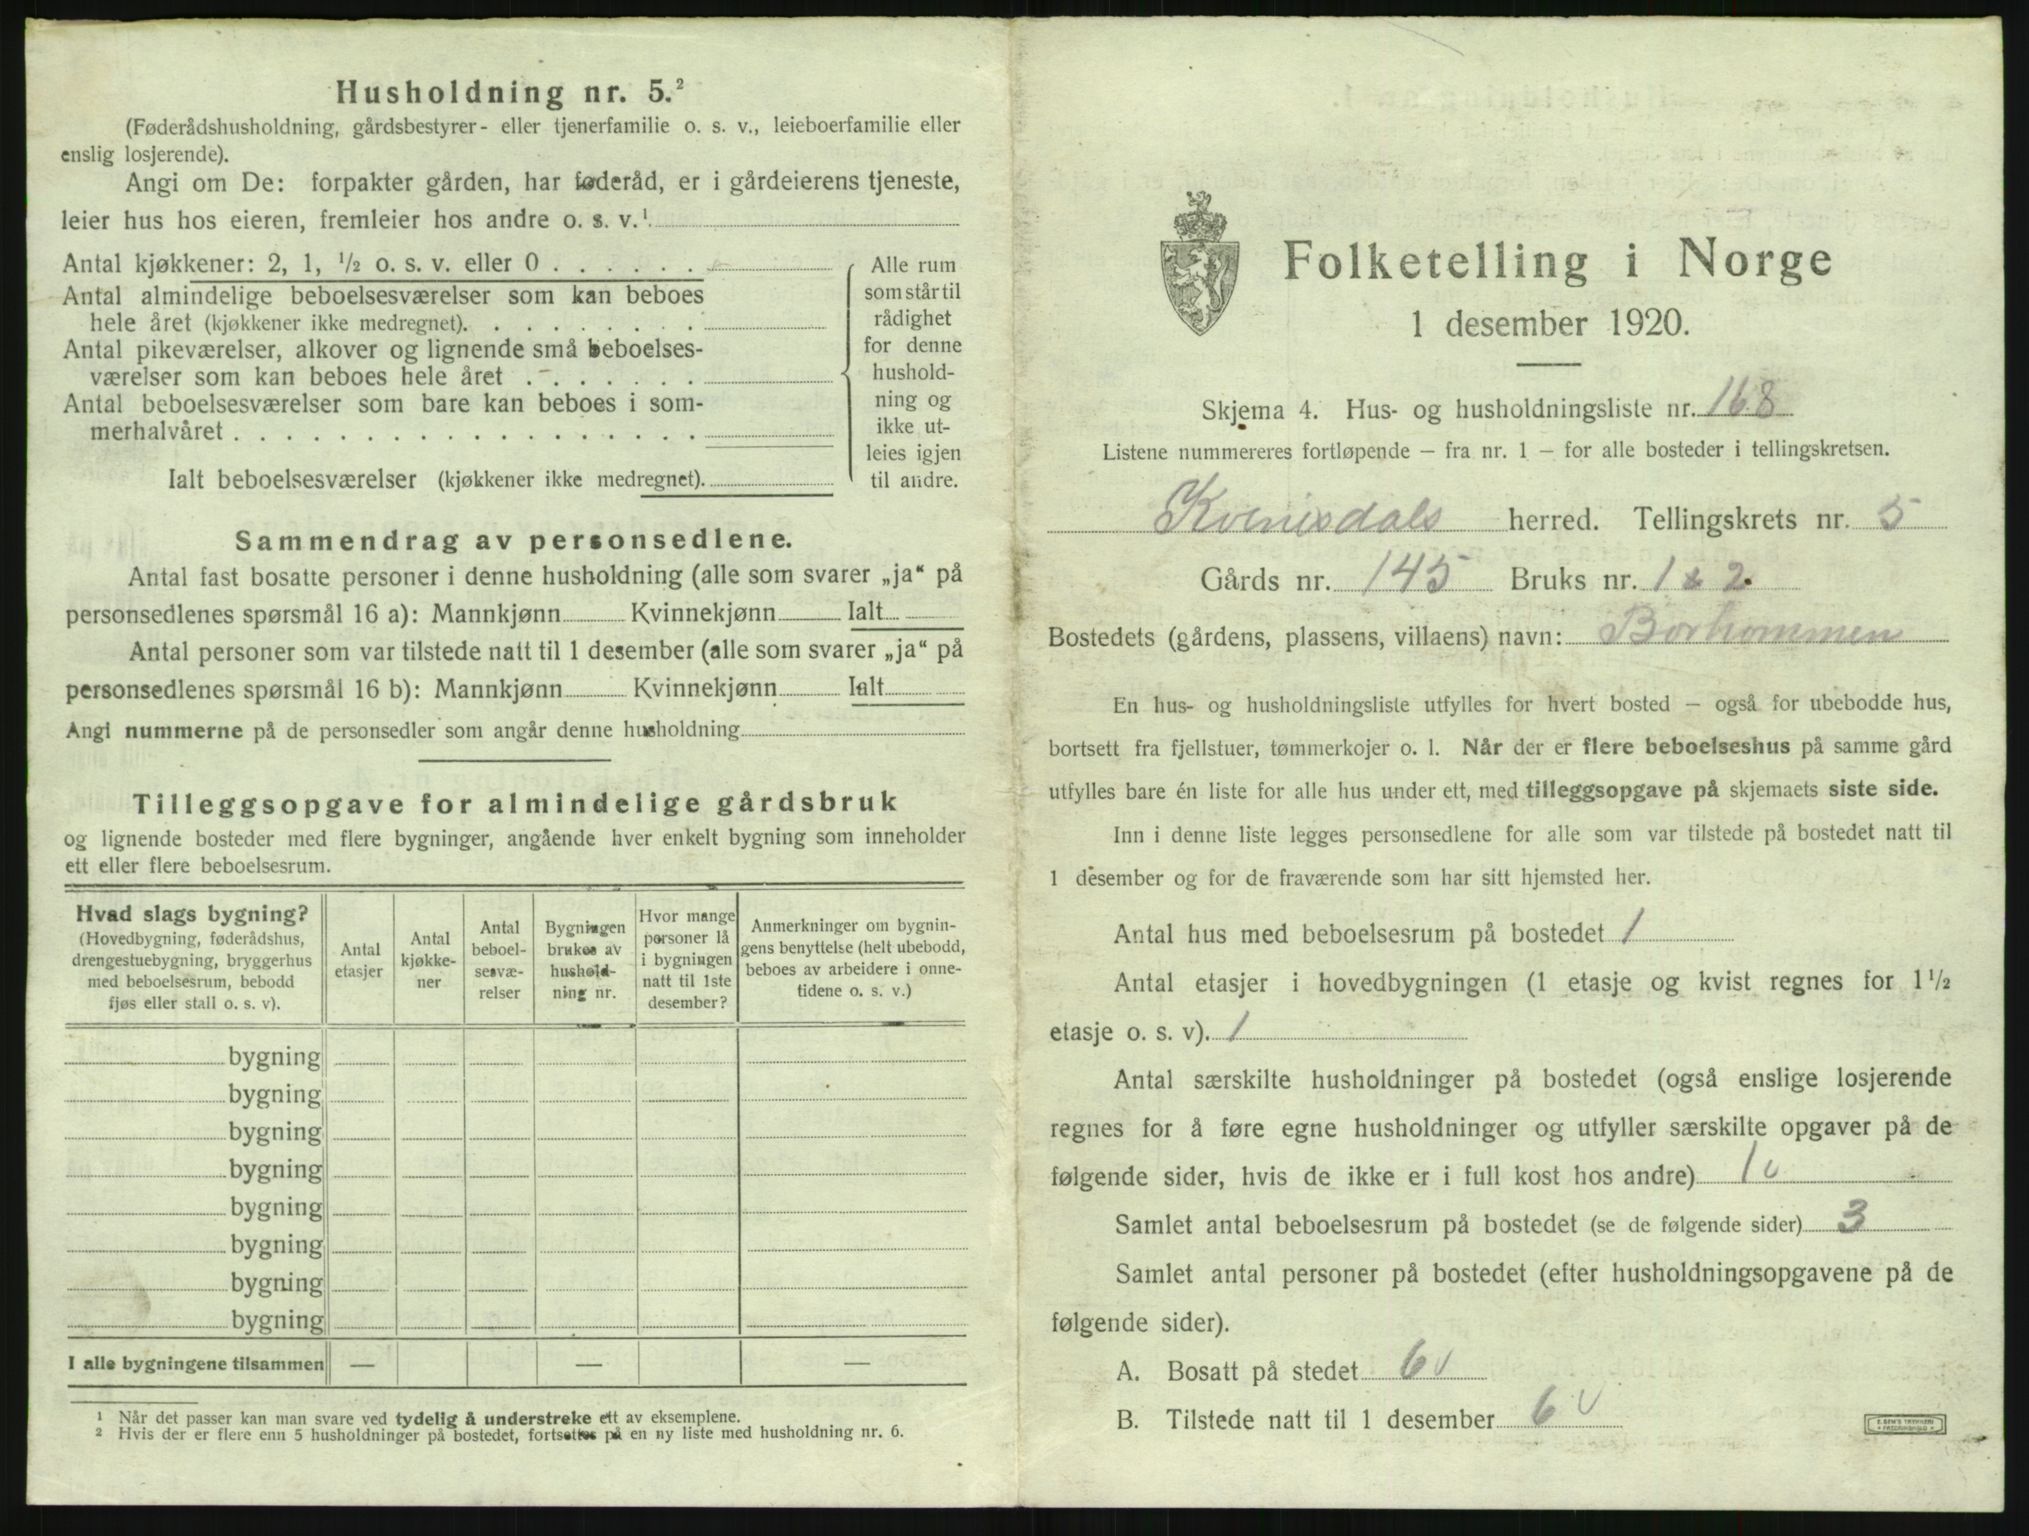 Husholdning nr. 5.²
(Føderådshusholdning, gårdsbestyrer- eller tjenerfamilie o. s. v., leieboerfamilie eller
enslig losjerende).
Angi om De: forpakter gården, har føderåd, er i gårdeierens tjeneste,
leier hus hos eieren, fremleier hos andre o. s. v.¹
Antal kjøkkener: 2, 1, ½ o. s. v. eller 0
Antal almindelige beboelsesværelser som kan beboes
hele året (kjøkkener ikke medregnet).
Antal pikeværelser, alkover og lignende små beboelses-
værelser som kan beboes hele året
Antal beboelsesværelser som bare kan beboes i som-
merhalvåret
Ialt beboelsesværelser (kjøkkener ikke medregnet).
Alle rum
som står til
rådighet
for denne
hushold-
ning og
ikke ut-
leies igjen
til andre.
Sammendrag av personsedlene.
Antal fast bosatte personer i denne husholdning (alle som svarer „ja“ på
personsedlenes spørsmål 16 a): Mannkjønn Kvinnekjønn Ialt
Antal personer som var tilstede natt til 1 desember (alle som svarer „ja“ på
personsedlenes spørsmål 16 b): Mannkjønn Kvinnekjønn Ialt
Angi nummerne på de personsedler som angår denne husholdning
Tilleggsopgave for almindelige gårdsbruk
og lignende bosteder med flere bygninger, angående hver enkelt bygning som inneholder
ett eller flere beboelsesrum.
Hvad slags bygning?
(Hovedbygning, føderådshus,
drengestuebygning, bryggerhus
med beboelsesrum, bebodd
fjøs eller stall o. s. v).
Antal
etasjer
Antal
kjøkke-
ner
Antal
beboel-
sesvæ-
relser
Bygningen
brukes av
hushold-
ning nr.
Hvor mange
personer lå
i bygningen
natt til 1ste
desember?
Anmerkninger om bygnin-
gens benyttelse (helt ubebodd,
beboes av arbeidere i onne-
tidene o. s. v.)
bygning
bygning
bygning
bygning
bygning
bygning
bygning
bygning
I alle bygningene tilsammen — — —
¹ Når det passer kan man svare ved tydelig å understreke ett av eksemplene.
² Hvis der er flere enn 5 husholdninger på bostedet, fortsettes på en ny liste med husholdning nr. 6.
Folketelling i Norge
1 desember 1920.
Skjema 4. Hus- og husholdningsliste nr. 168
Listene nummereres fortløpende — fra nr. 1 — for alle bosteder i tellingskretsen.
Kvinesdals herred. Tellingskrets nr. 5
Gårds nr. 145 Bruks nr. 1 & 2.
Bostedets (gårdens, plassens, villaens) navn: Borhommen
En hus- og husholdningsliste utfylles for hvert bosted — også for ubebodde hus,
bortsett fra fjellstuer, tømmerkojer o. l. Når der er flere beboelseshus på samme gård
utfylles bare én liste for alle hus under ett, med tilleggsopgave på skjemaets siste side.
Inn i denne liste legges personsedlene for alle som var tilstede på bostedet natt til
1 desember og for de fraværende som har sitt hjemsted her.
Antal hus med beboelsesrum på bostedet 1
Antal etasjer i hovedbygningen (1 etasje og kvist regnes for 1½
etasje o. s. v). 1
Antal særskilte husholdninger på bostedet (også enslige losjerende
regnes for å føre egne husholdninger og utfyller særskilte opgaver på de
følgende sider, hvis de ikke er i full kost hos andre) 1
Samlet antal beboelsesrum på bostedet (se de følgende sider) 3
Samlet antal personer på bostedet (efter husholdningsopgavene på de
følgende sider).
A. Bosatt på stedet 6
B. Tilstede natt til 1 desember 6